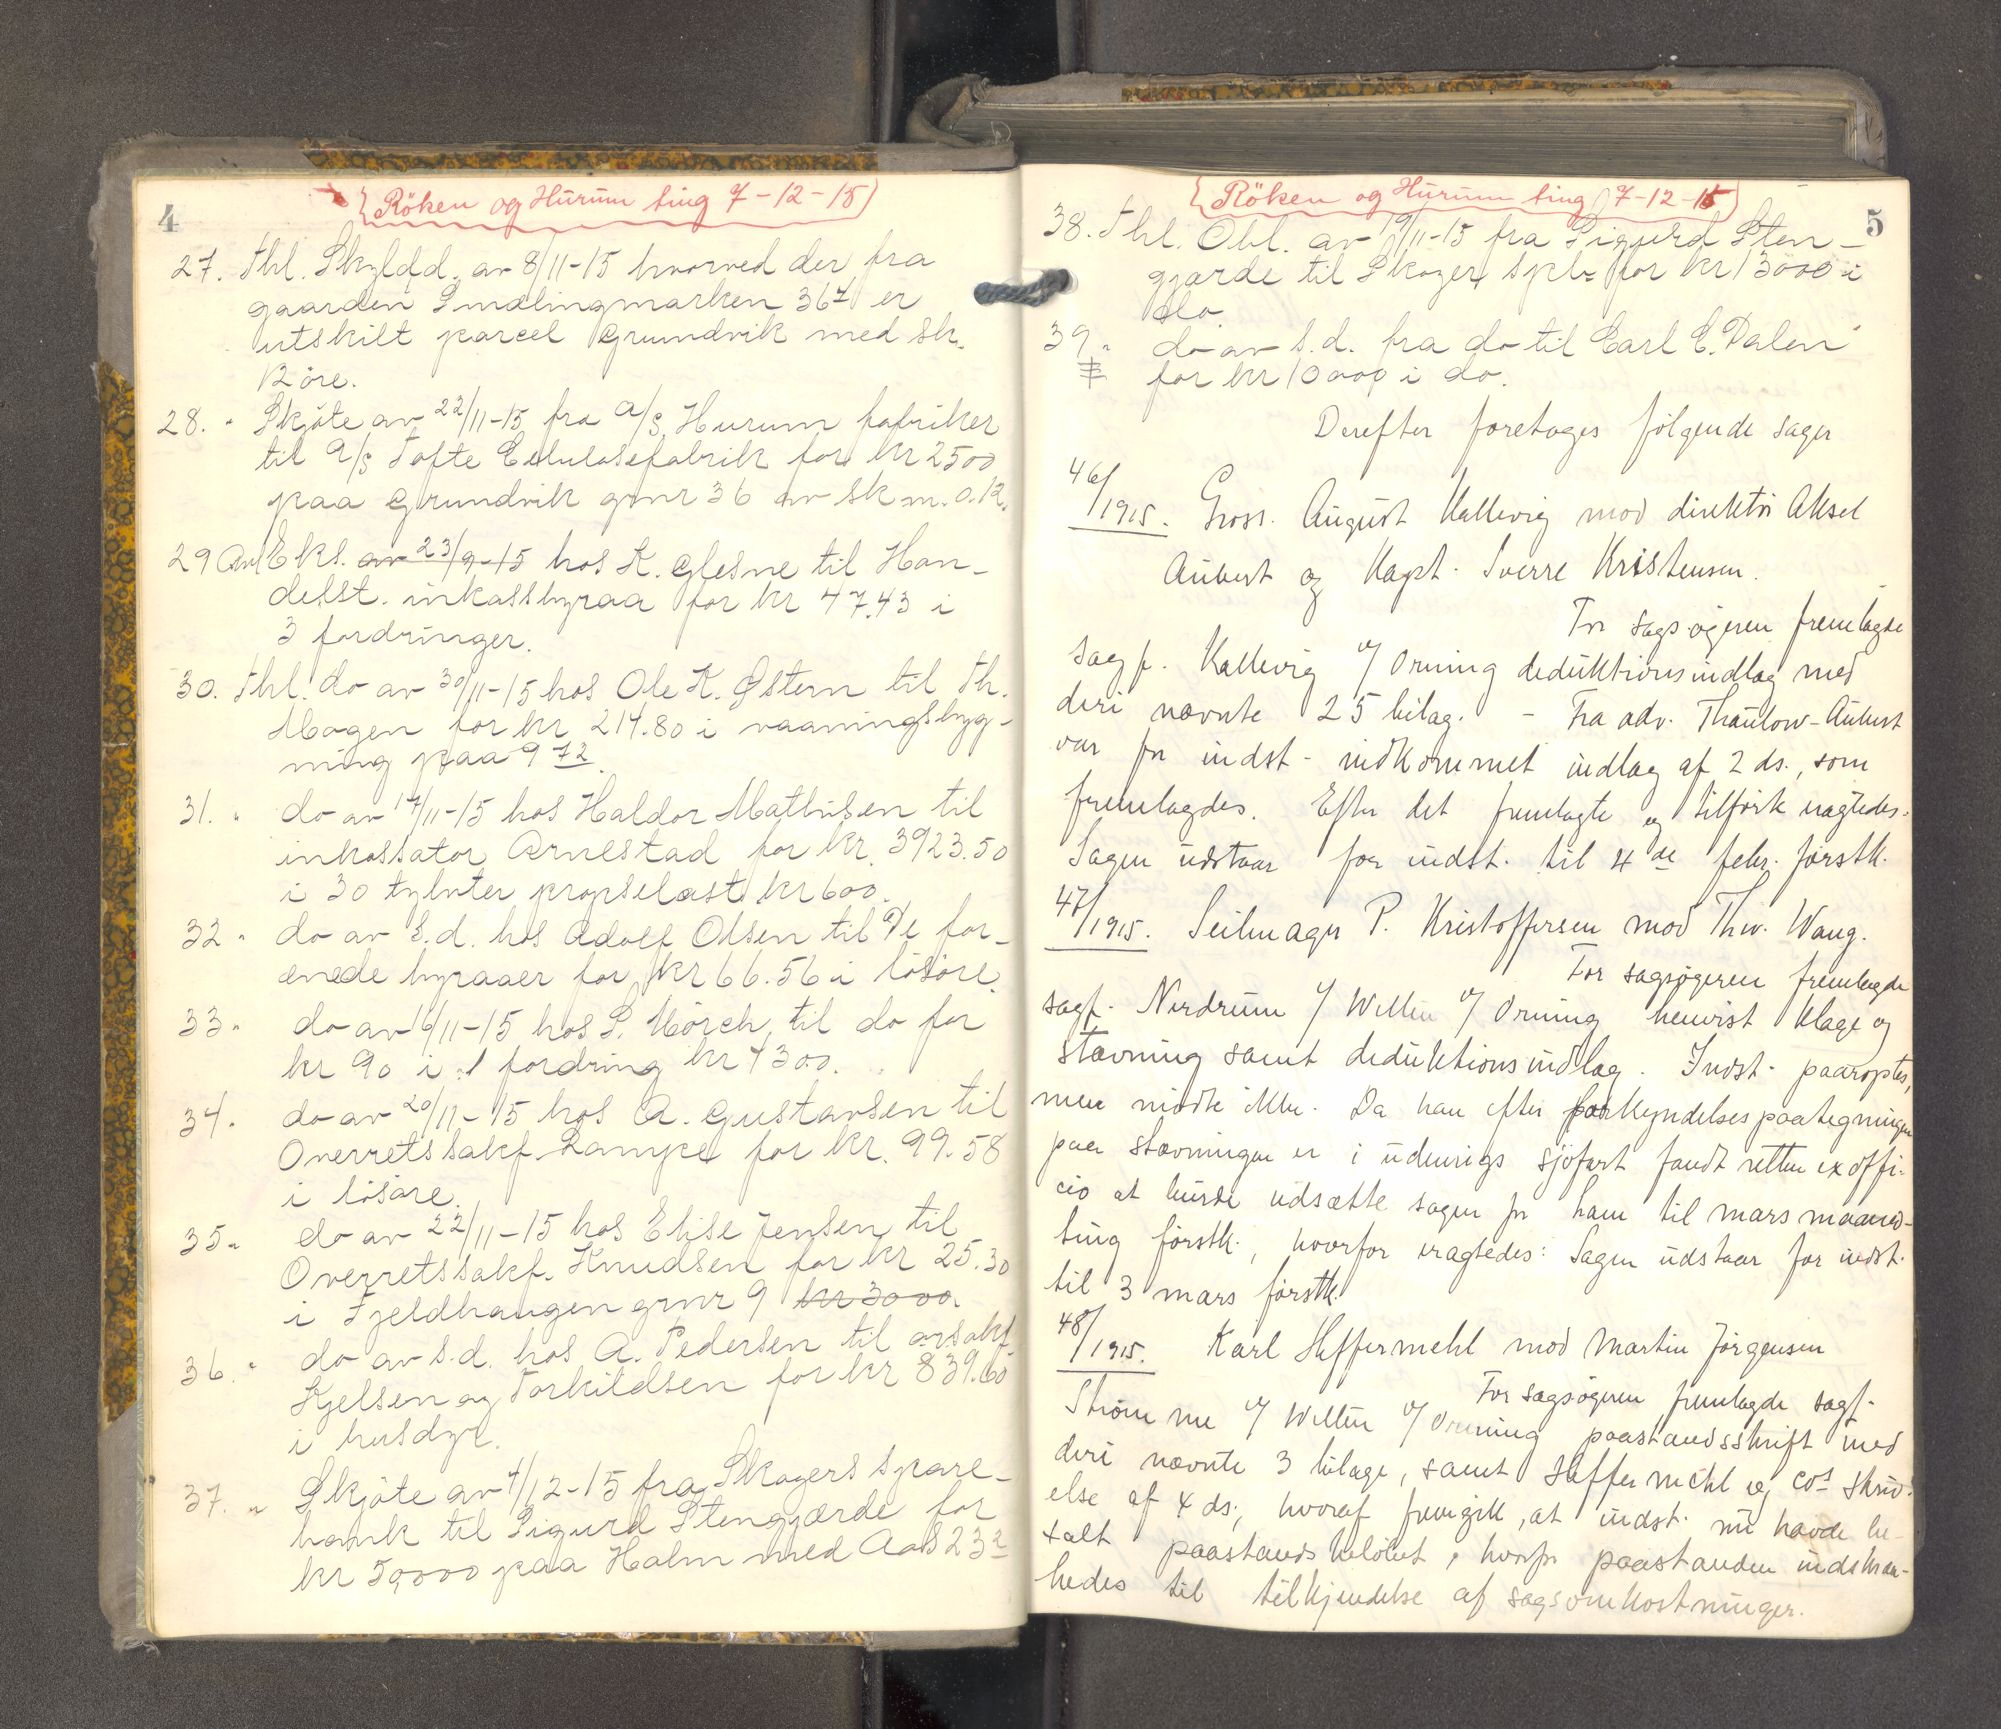 4
Röken og Hurum ting 7-12-15
27. Thl. Skyldd. av 8/11-15 hvorved der fra
gaarden Smølingmarken 36⁷ er
utskilt parcel Grundvik med sk.
12 öre.
28. " Skjöte av 22/11-15 fra A/S Hurum fabriker
til A/S Tofte Cellulosefabrik for kr 2500
paa Grundvik grnr 36 av sk m. 0.12.
29 Anl Eks. av 23/9-15 hos K. Glesne til Han-
delsst. inkassbyraa for kr 47.43 i
3 fordringer.
30. Thl. do av 30/11-15 hos Ole K. Østern til Th.
Mogen for kr 214.80 i vaaningsbyg-
ning paa 9 72.
31. " do av 17/11-15 hos Haldor Mathisen til
inkassator Arnestad for kr. 3923.50
i 30 tylvter propselast kr 600.
32 " do av s.d. hos Adolf Olsen til De for-
enede byraaer for kr 66.56 i lösöre.
33 " do av 16/11-15 hos S. Mörch til do for
kr 90 i 1 fordring kr 1300.
34. " do av 20/11-15 hos A. Gustavsen til
Overretssakf. Lampe for kr. 99.58
i lösöre.
35 " do av 22/11-15 hos Elise Jensen til
Overretssakf. Knudsen for kr 25.30
i Fjeldhaugen grnr 9 kr 3000.
36. " do av s.d. hos A. Pedersen til orsakf.
Kjelsen og Torkildsen for kr 839.60
i husdyr.
37. " Skjöte av 4/12-15 fra Skogers spare-
bank til Sigurd Stengjærde for
kr 50000 paa Holm med Aas 23²
5
Röken og Hurum ting 7-12-15
38. Thl. Obl. av 19/11-15 fra Sigurd Sten-
gjærde til Skoger spb. for kr 13000 i
do.
39 " do av s.d. fra do til Carl E. Dalen
for kr 10000 i do.
Derefter foretoges følgende sager
46/1915. Gross. August Kallevig mod direktør Aksel
Aubert og Kapt. Sverre Kristensen.
For sagsøgeren fremlagde
sagf. Kallevig v/ Orning deduktionsindlæg med
deri nævnte 25 bilag. - Fra adv. Thaulow-Aubert
var for indst. indkommet indlæg af 2 ds., som
fremlagdes. Efter det fremlagte og tilførte eragtedes:
Sagen udstaar for indst. til 4de febr. førstk.
47/1915. Seilmager P. Kristoffersen mod Thv. Wang.
For sagsøgeren fremlagde
sagf. Nerdrum v/ Willum v/ Orning henvist klage og
stævning samt deduktionsindlæg. Indst. paaroptes,
men mødte ikke. Da han efter forkyndelsespaategningen
paa stævningen er i udenrigs sjøfart fandt retten ex offi-
cio at burde udsætte sagen for ham til mars maaned-
ting førstk., hvorfor eragtedes: Sagen udstaar for indst.
til 3 mars førstk.
48/1915. Karl Heffermehl mod Martin Jørgensen
For sagsøgeren fremlagde sagf.
Strømme v/ Willum v/ Orning paastandsskrift med
deri nævnte 3 bilage, samt Heffermehl og co's skriv-
else af 4 ds., hvoraf fremgik, at indst. nu havde be-
talt paastandsbeløbet, hvorfor paastanden indskræn-
kedes til tilkjendelse af sagsomkostninger.